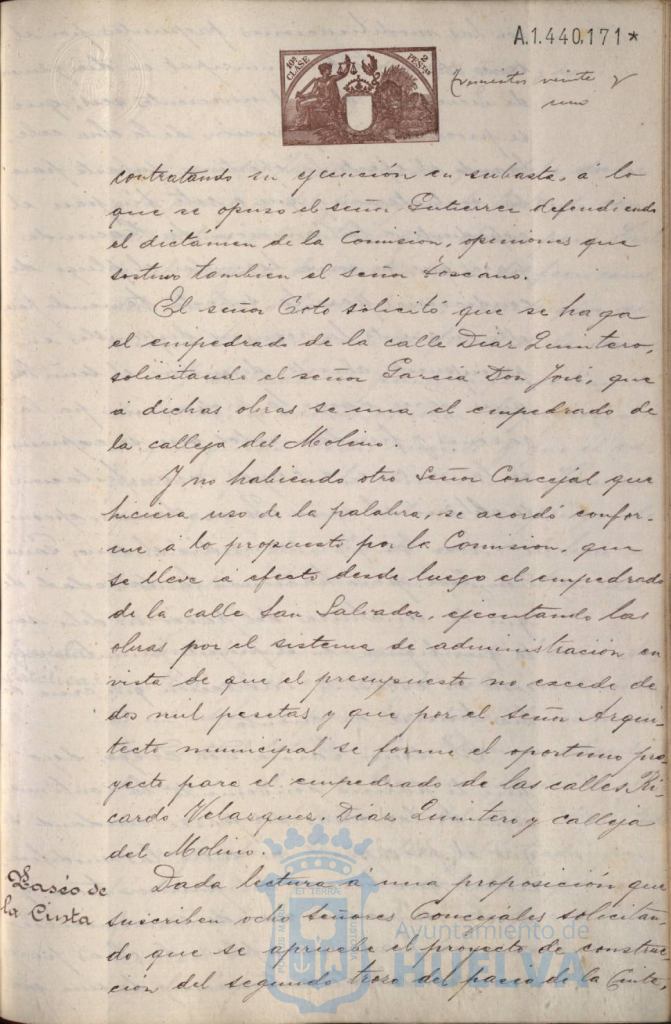 A.1.440,171*
10ª CLASE
2 PESETAS
trescientos veinte y
uno
contratando su ejecución en subasta, á lo
que se opuso el señor Gutierrez defendiendo
el dictámen de la Comision, opiniones que
sostuvo tambien el señor Toscano.
El señor Coto solicitó que se haga
el empedrado de la calle Diaz Quintero,
solicitando el señor Garcia Don José, que
á dichas obras se una el empedrado de
la calleja del Molino.
Y no habiendo otro Señor Concejal que
hiciera uso de la palabra, se acordó confor-
me á lo propuesto por la Comision, que
se lleve á efecto desde luego el empedrado
de la calle San Salvador, ejecutando las
obras por el sistema de administración en
vista de que el presupuesto no excede de
dos mil pesetas y que por el señor Arqui-
tecto municipal se forme el oportuno pro
yecto para el empedrado de las calles Ri-
cardo Velazquez, Diaz Quintero y calleja
del Molino.
Paseo de
la Cinta
Dada lectura á una proposición que
suscriben ocho señores Concejales solicitan-
do que se apruebe el proyecto de construc-
ción del segundo trozo del paseo de la Cinta,
Ayuntamiento de
HUELVA